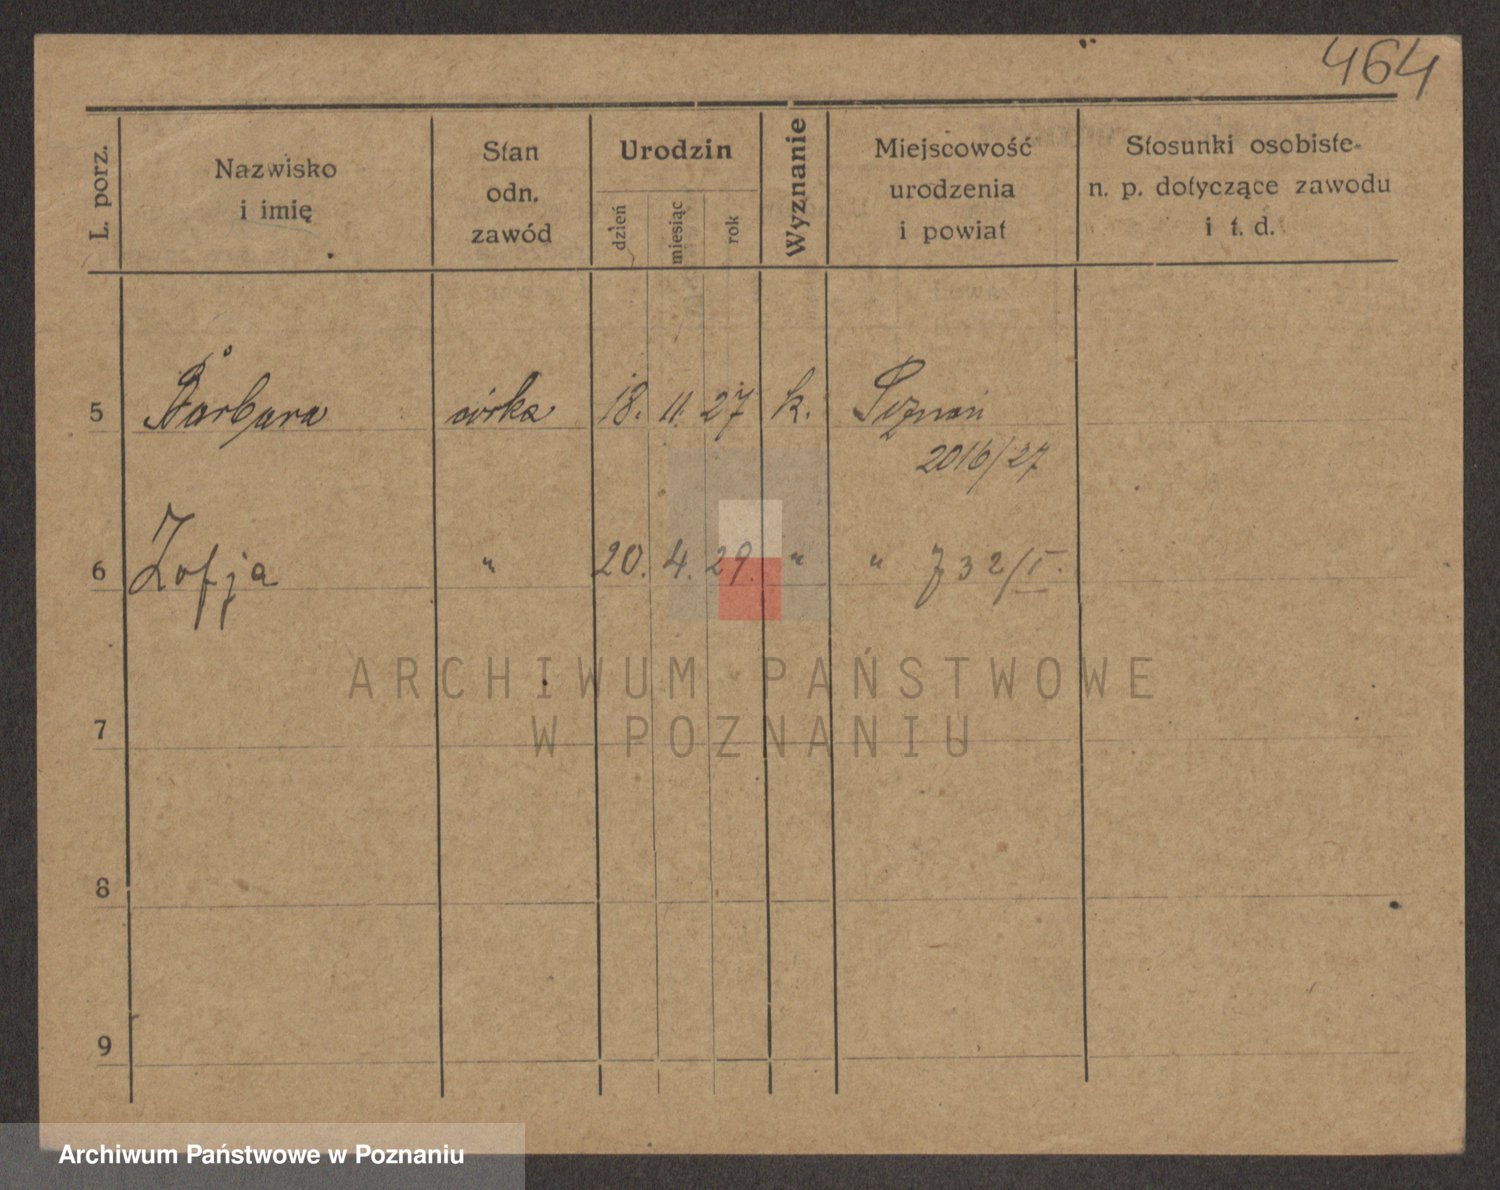 464
L. porz.
Nazwisko
i imię
Stan
odn.
zawód
Urodzin
dzień
miesiąc
rok
Wyznanie
Miejscowość
urodzenia
i powiat
Stosunki osobiste
n. p. dotyczące zawodu
i t. d.
5 Barbara córka 18. 11. 27 k. Poznań
2016/27
6 Zofja " 20. 4. 29. " " 732/I.
7
8
9
ARCHIWUM PAŃSTWOWE
W POZNANIU
Archiwum Państwowe w Poznaniu